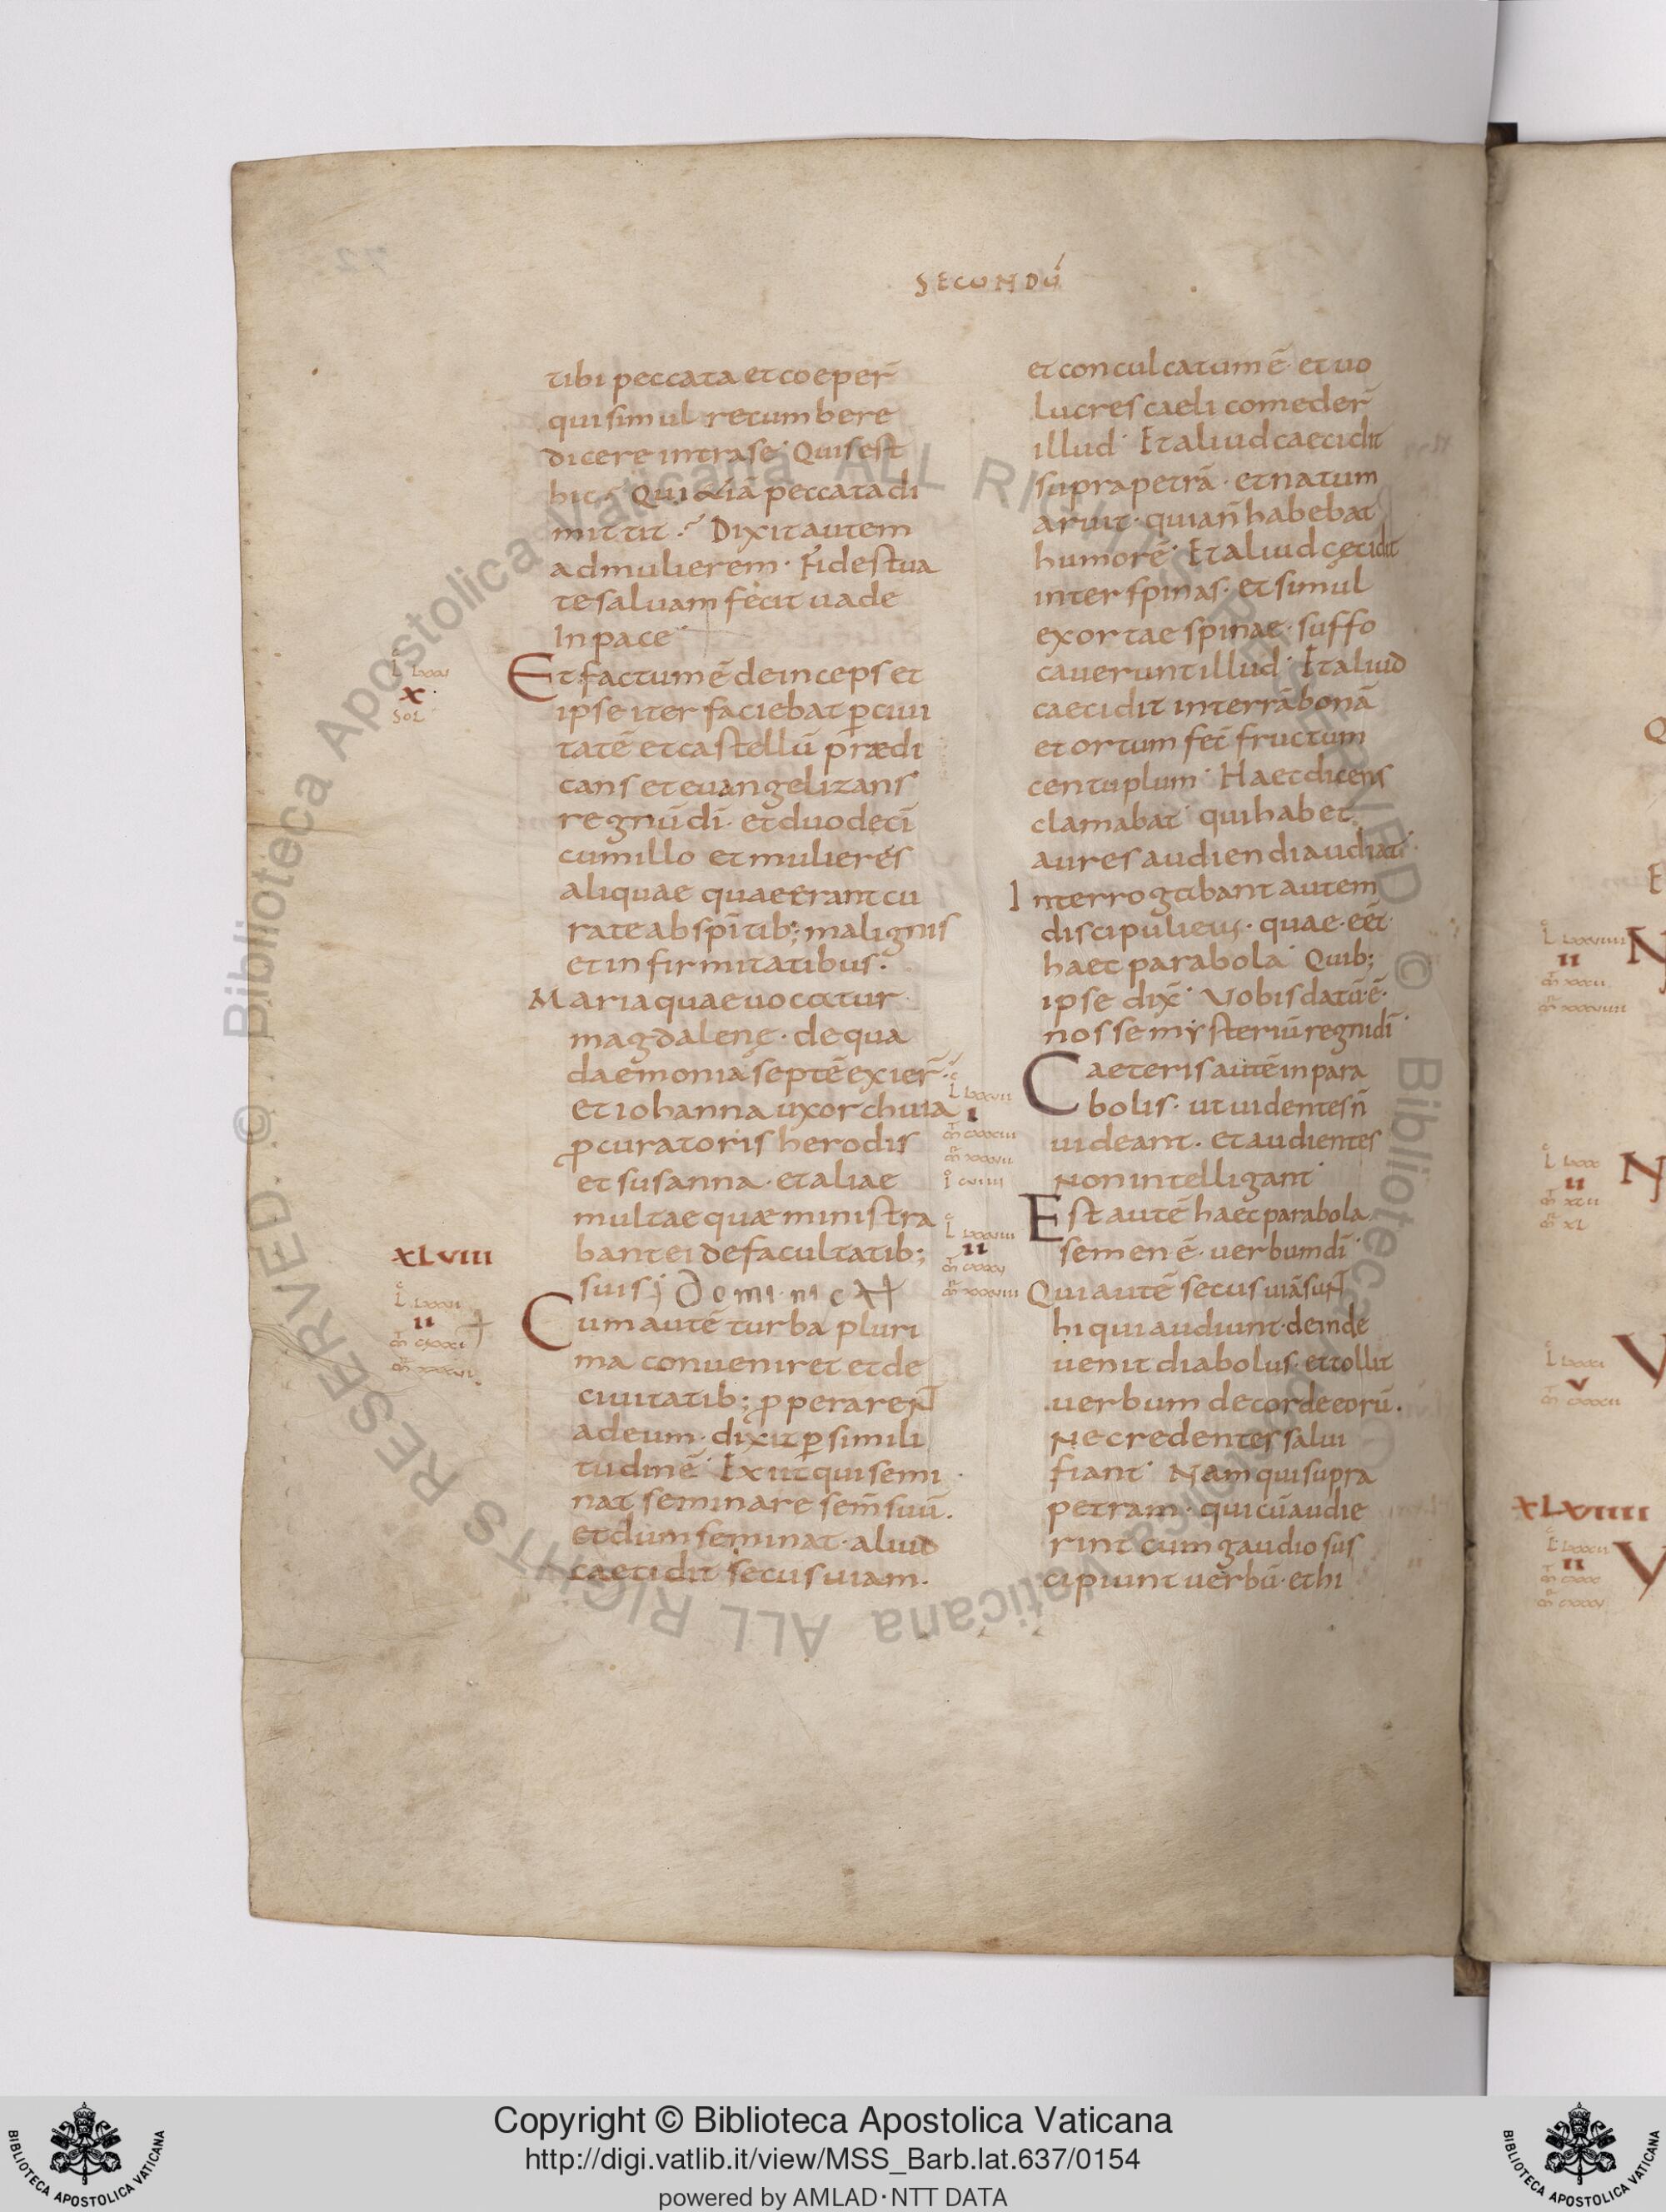 SECUNDŪ
tibi peccata et coeper̄
qui simul recumbere
dicere intra se· Quis est
hic· Qui etiā peccata di
mittit·? Dixit autem
ad mulierem· Fides tua
te saluam fecit uade
In pace·
Et factum ē deinceps et
ipse iter faciebat ꝑ ciui
tatē et castellū prædi
cans et euangelizans
regnū dī· et duodecī
cum illo et mulieres
aliquae quae erant cu
rate ab spītib; malignis
et infirmitatibus·
Maria quae uocatur
magdalenę· de qua
daemonia septē exier̄·
et iohanna uxor chuza
ꝓcuratoris herodis
et susanna· et aliae
multae quæ ministra
bant ei de facultatib;
suis; DominicA
Cum autē turba pluri
ma conueniret et de
ciuitatib; ꝓperarent
ad eum· dixit ꝑ simili
tudinē· Exiit qui semi
nat seminare sem̄ suū·
et dum seminat· aliud
caecidit secus uiam·
L̊ lxxv
X
SOL
XLVIII
L̊ lxxvi
II
et conculcatum ē· et uo
lucres caeli comeder̄
illud· Et aliud caecidit
supra petrā· et natum
aruit· quia n̄ habebat
humorē· Et aliud cęcidit
inter spinas· et simul
exortae spinae· suffo
cauerunt illud· Et aliud
caecidit in terrā bonā
et ortum fec̄ fructum
centuplum· Haec dicens
clamabat· qui habet
aures audiendi audiat·
Interrogabant autem
discipuli eius· quae eēt
haec parabola· Quib;
ipse dix̄· Uobis datū ē·
nosse mysteriū regni dī·
Caeteris autē in para
bolis· ut uidentes n̄
uideant· et audientes
Non intelligant·
Est autē haec parabola·
semen ē· uerbum dī·
Qui autē secus uiā sunt
hi qui audiunt· deinde
uenit diabolus· et tollit
uerbum de corde eorū·
Ne credentes salui
fiant· Nam qui supra
petram· qui cū audie
rint cum gaudio sus
cipiunt uerbū· et hi
L̊ lxxvii
I
L̊ lxxviii
II
L̊ lxxviiii
II
L̊ lxxx
II
L̊ lxxxi
V
XLVIIII
L̊ lxxxii
II
© Biblioteca Apostolica Vaticana ALL RIGHTS RESERVED
© Biblioteca Apostolica Vaticana ALL RIGHTS RESERVED
Copyright © Biblioteca Apostolica Vaticana
http://digi.vatlib.it/view/MSS_Barb.lat.637/0154
powered by AMLAD·NTT DATA
BIBLIOTECA APOSTOLICA VATICANA
BIBLIOTECA APOSTOLICA VATICANA